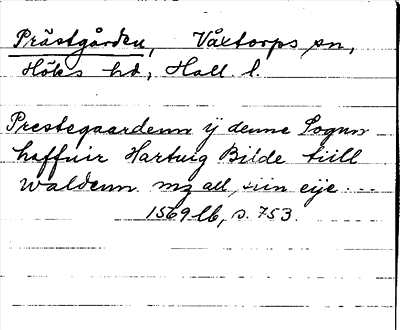 Prästgården, Våxtorps sn,
Höks hd, Hall. l.
Prestegaardenn ÿ denne Sogun
haffuir Hartuig Bilde tiill
waldenn mz all, siin eije ...
1569 lb, s. 753.